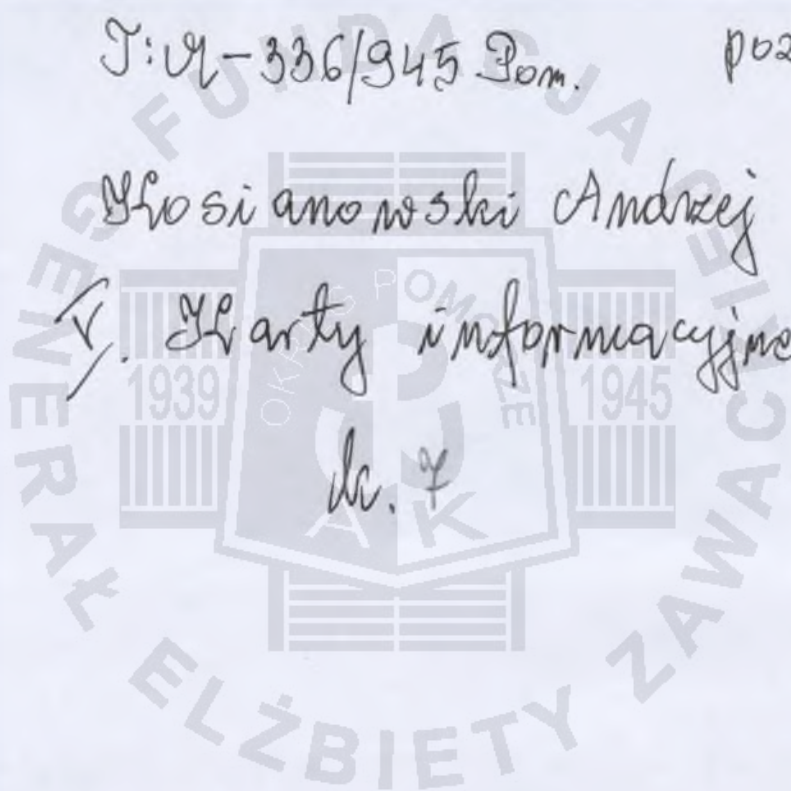 T: M-336/945 Pom. poz
Kosianowski Andrzej
V. Karty informacyjne
k. 7
FUNDACJA GENERAŁ ELŻBIETY ZAWACKIEJ
OKRĘG POMORZE
1939 1945
AK